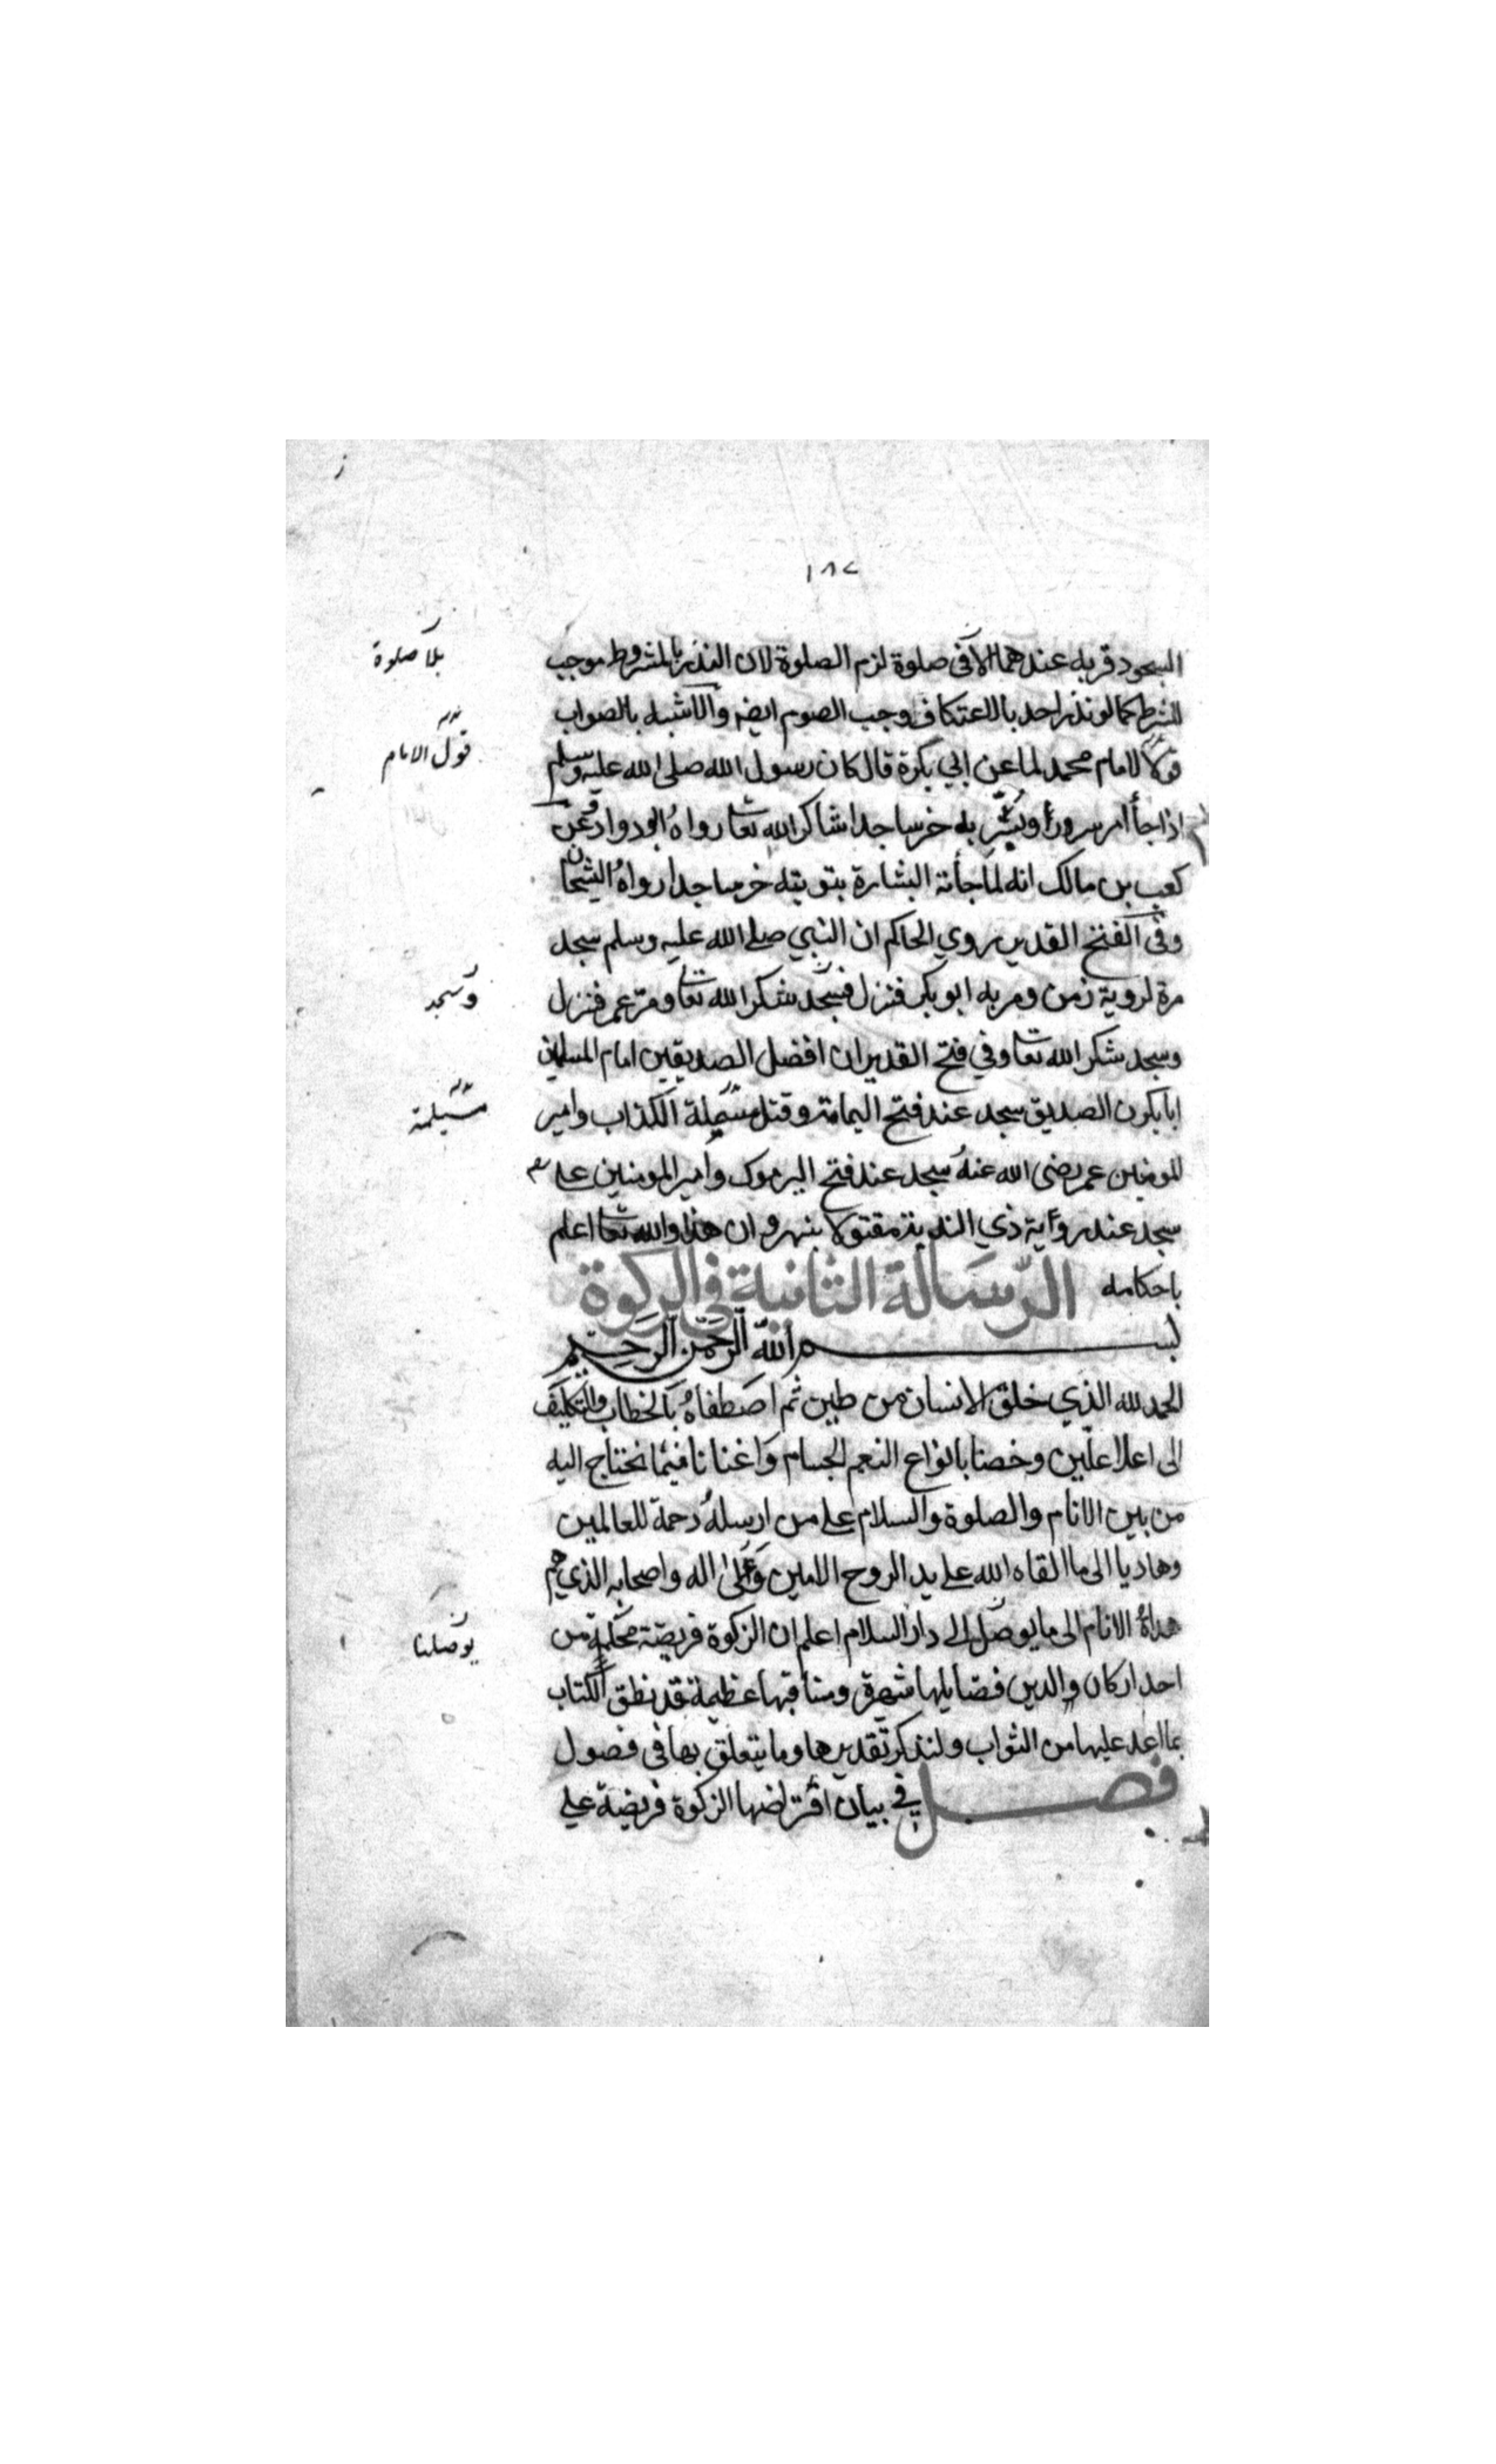 ١٨٧
السجود قربه عندهما الا فى صلوة لزم الصلوة لان النذر بالمشروط موجب
بلا صلوة
للشرط كما لو نذر احد بالاعتكاف وجب الصوم ايضه والاشبه بالصواب
قول الامام
الامام محمد لما عن ابي بكرة قال كان رسول الله صلى الله عليه وسلم
اذا جأ امر سرورا و بشر به خر ساجدا شاكرا لله تعا رواه ابو دواد وعن
كعب بن مالك انه لما جأته البشارة بتوبته خر ساجدا رواه الشيخان
وفى الفتح القدير روي الحاكم ان النبي صلى الله عليه وسلم سجد
مرة لروية زمن ومر به ابو بكر فنزل فسجد شكرا لله تعا ومر عمر فنزل
وسجد
وسجد شكر الله تعا وفي فتح القدير ان افضل الصديقين امام المسلمين
ابا بكرن الصديق سجد عند فتح اليمامة وقتل مسيلة الكذاب وامير
مسيلمة
المومنين عمر رضى الله عنه سجد عند فتح اليرموك وامير المومنين علي
سجد عند رواية ذي الثدية مقتولا بنهروان هذا والله تعا اعلم
باحكامه الرسالة الثانية في الزكوة
بسم الله الرحمن الرحيم
الحمد لله الذي خلق الانسان من طين ثم اصطفاه بالخطاب والتكليف
الى اعلا علين وخصنا بانواع النعم الجسام واغنانا فيما نحتاج اليه
من بين الانام والصلوة والسلام على من ارسله رحمة للعالمين
وهاديا الى ما القاه الله على يد الروح الامين وعلى اله واصحابه الذي هم
هداة الانام الى ما يوصل الى دار السلام اعلم ان الزكوة فريضة محكمة من
يوصلنا
احد اركان والدين فضايلها شهيرة ومناقبها عظيمة قد نطق الكتاب
بما اعد عليها من الثواب ولنذكر تقديرها وما يتعلق بها فى فصول
فصل في بيان افتراضها الزكوة فريضة على